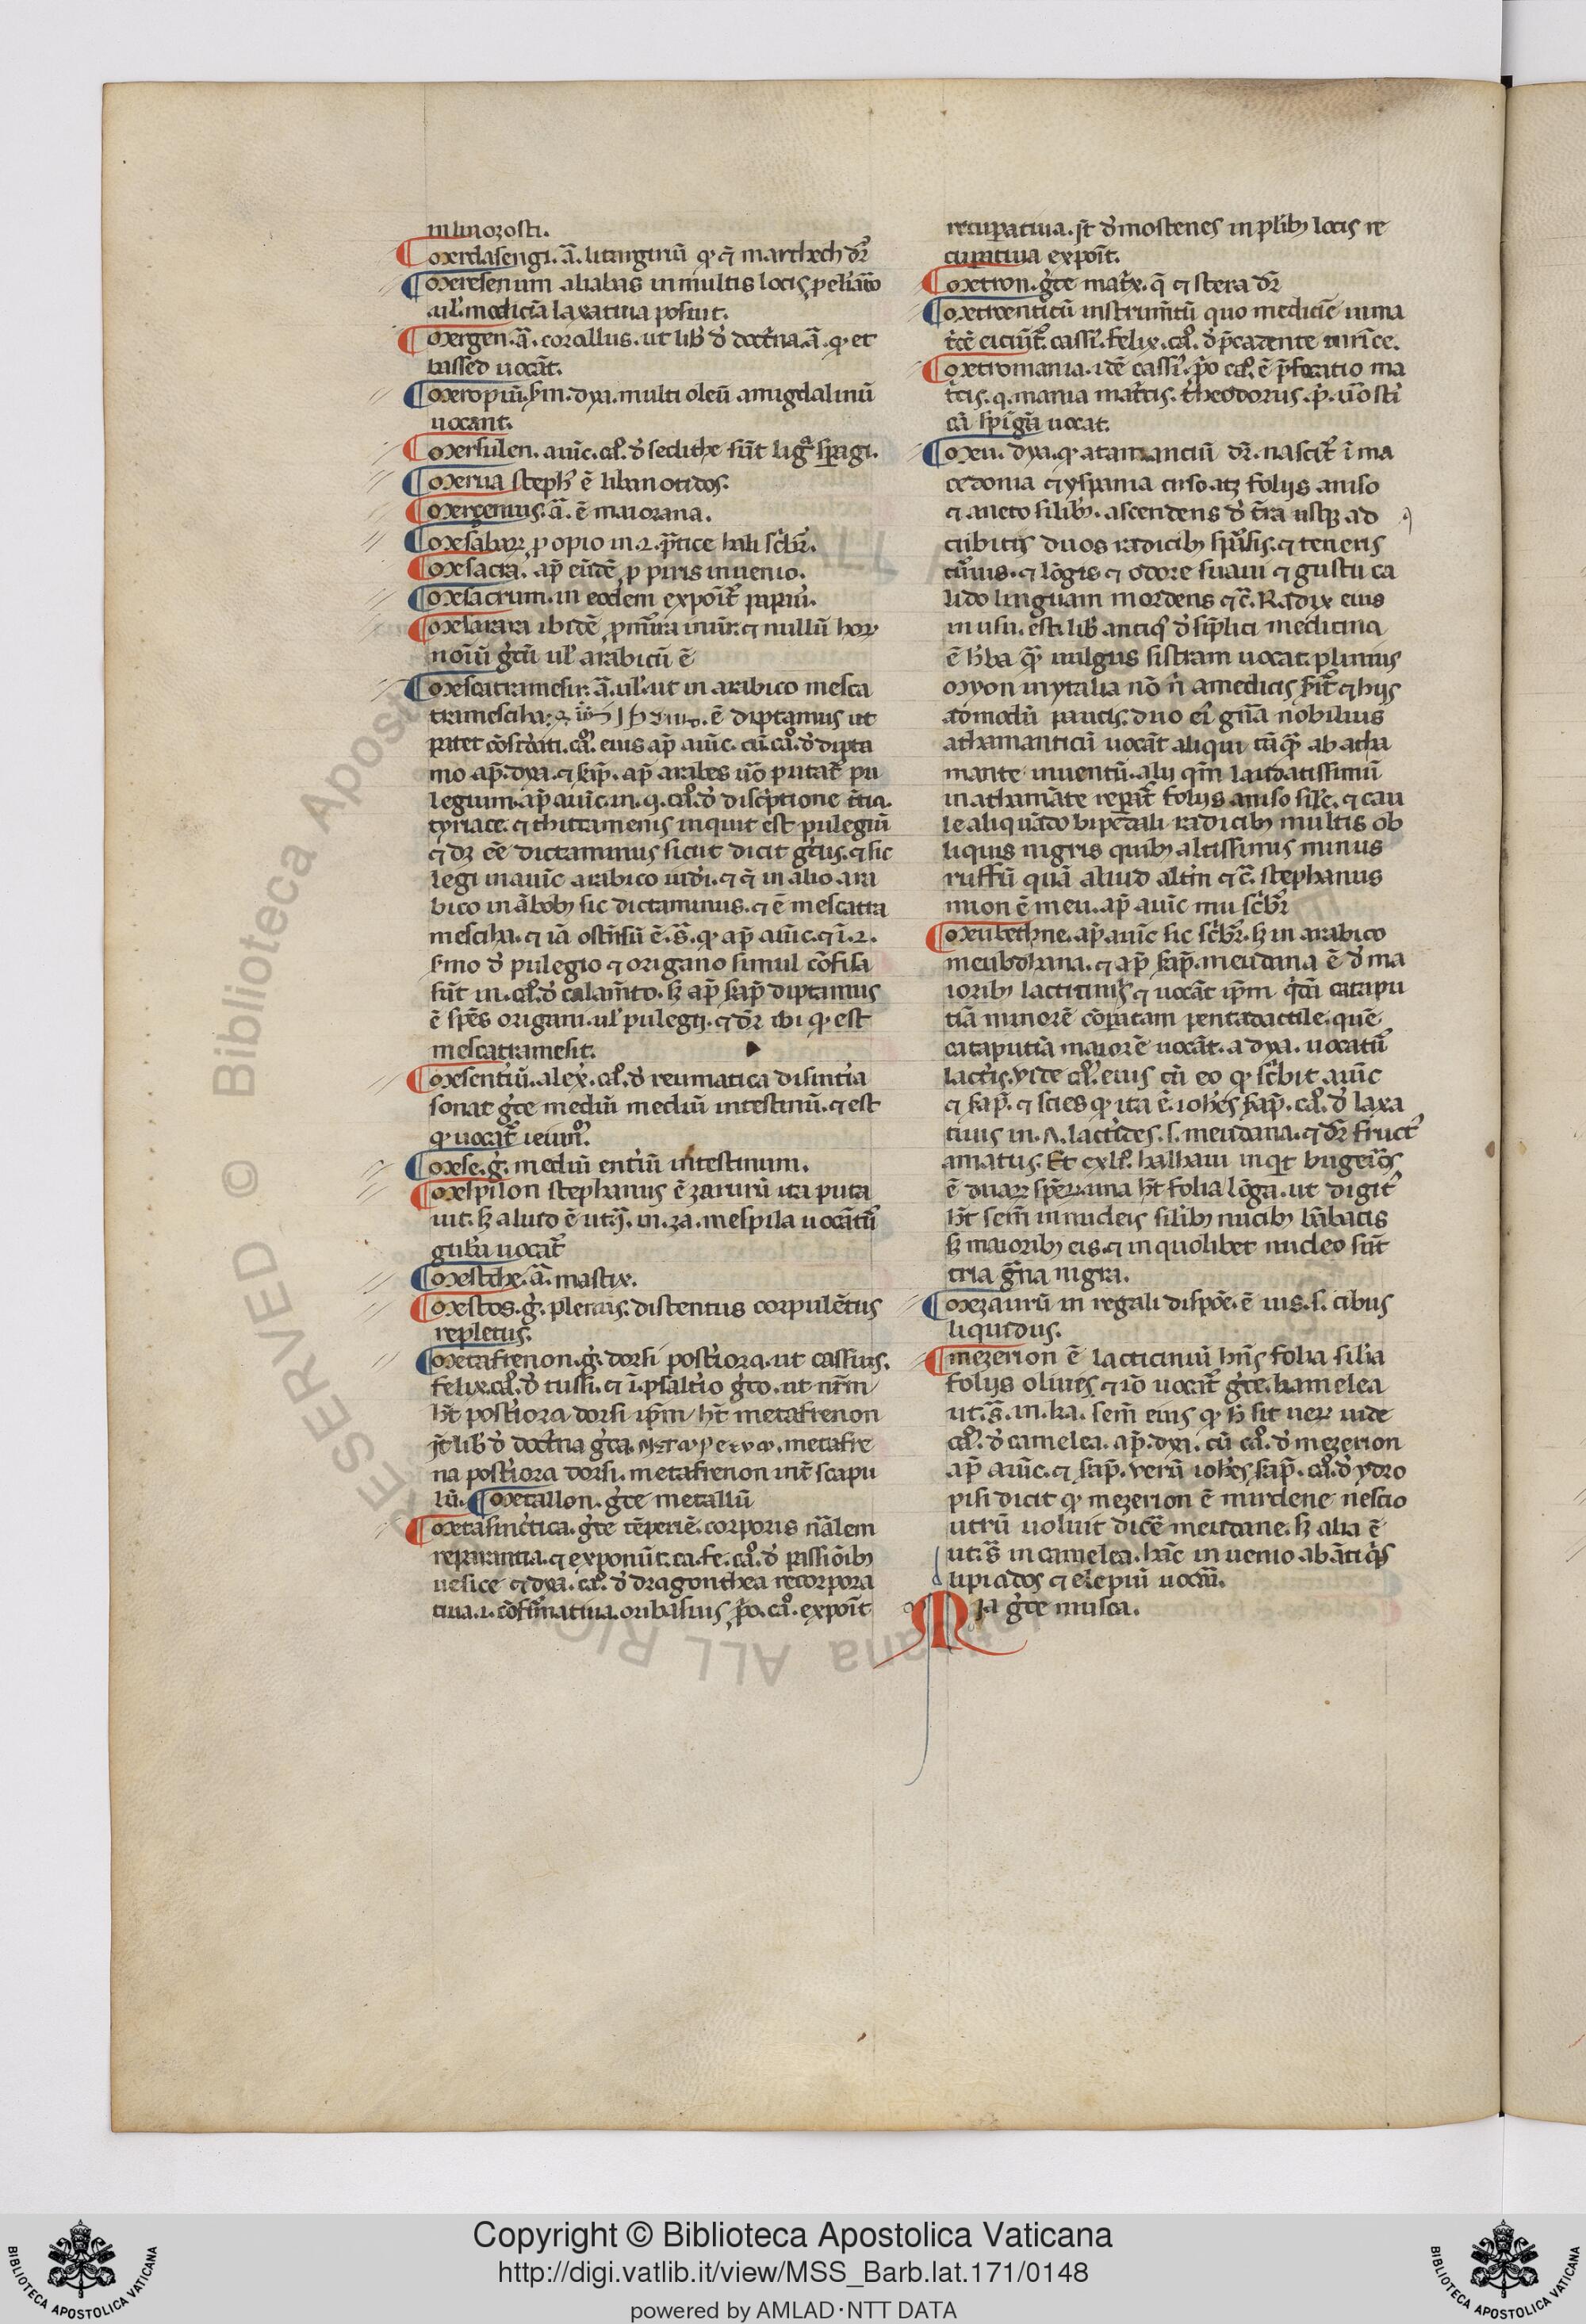 in linozosti.
Merdasengi. ā. litargiriū ꝙ ⁊ martħech dr̄
Meresenum aliabas in multis locis, p eliāto
ul' medicīa laxatiua posuit.
Mergen. ā. corallus. ut lib' d' doctna. ā. ꝙ et
bassed uocāt.
Meropiū. fm. dya. multi oleū amigdalinū
uocant.
Mersulen. auic. ca°. d' sedithe sūt ligᵃ spagi.
Merua steph' ē libanotidos.
Mergenius. ā. ē maiorana.
Mesābar p opio in .2. pctice hali sc̄br̄.
Mesacra. ap̄ eūdē p piris inuenio.
Mesacrum. in eodem expoīt̄
Mesarara ibidē
noīū g̊cū ul' arabicū ē
Mescatramesir. ā. ul' ut in arabico mesca
tramesciha: ē diptamus ut
mo ap̄. dya. ⁊ sap̄. ap̄ arabes uō putat̄ pu
legium. ap̄ auic. in. q. ca°. d' disc̄ptione
tyriace. ⁊ thittamenis inquit est pulegiū
⁊ dz eē dictaminus sicut dicit g̊cus. ⁊ sic
legi in auic arabico uidi. ⁊ ⁊ in alio ara
bico in ābob; sic dictaminus. ⁊ ē mescatra
mesciha. ⁊ iā ostnsū ē. s̄. ꝙ ap̄ auic. ⁊ ī. 2.
s'mo d' pulegio ⁊ origano simul cōfisa
sūt in. ca°. d' calamto. s; ap̄ sap̄ diptamus
ē spēs origani. ul' pulegij. ⁊ dr̄ ibi ꝙ est
mescatramesir.
Mesentiū. alex̄. ca°. d' reumatica disintia
sonat g̊ce mediū mediū intestinū. ⁊ est
ꝙ uocat̄ ieiun̄.
Mese. g̊. mediū entiū intestinum.
Mespilon stephanus ē zarurū ita puta
uit. s; aliud ē ut. s̄. in. za. mespila uocātū
uocat̄
Mestche. ā. mastix.
Mestos. g̊. plenus. distentus corpulētus
repletus.
Metafrenon. g̊. dorsi postiora. ut cassius.
felix. ca°. d' tussi. ⁊ ī psaltio g̊co. ut nr̄m
ħt postiora dorsi ip̄m ħt metafrenon
It̄ lib' d' doctna g̊ca. metafre
na postiora dorsi. metafrenon int̄ scapu
lū. Metallon. g̊ce metallū
Metasinctica. g̊ce tēperiē. corporis nālem
reparantia. ⁊ exponūt. ca. fe. ca°. d' passiōib;
uesice ⁊ dya. ca°. d' dragonthea recorpora
tiua. i. cōfirmatiua. oribasius p̊o. ca°. expoīt
recupatiua. It̄ d'mostenes in plib; locis re
cupatiua expoīt.
Metron. g̊ce matx. q̄ ⁊ stera dr̄
Metrenticū instrumtū quo mediciē in ma
t̄ce eiciūt̄. cassi'. felix. ca°. d' p̄cazente
Metromania. idē cassi'. p̊o ca°. ē p̄focatio ma
t̄cis. q. mania mat̄cis. theodorus. p̄. uō osti
cā uocat.
Meu. dya. ꝙ atamanciū dr̄. nascit̄ ī ma
cedonia ⁊ yspania folijs aniso
⁊ aneto silib;. ascendens d' t̄ra usq; ad
cubitis duos radicib; spūsis. ⁊ teneris
⁊ lōgis ⁊ odore suaui ⁊ gustu ca
lido linguam mordens ⁊ c̄. Radix eius
in usu. est. lib' antiq' d' sīplici medicina
ē h'ba q̄ uulgus sistram uocat. plinius
Myon in ytalia nō n̄ a medicis sit̄ ⁊ hijs
admodū paucis. duo ei' gn̄a nobilius
athamanticū uocāt aliqui tāq̄ ab atha
mante inuentū. alij qm̄ laudatissimū
in athamāte repat̄ folijs aniso sile. ⁊ cau
le aliquādo bipedali radicib; multis ob
liquis nigris quib; altissimus minus
ruffū quā aliud altin ⁊ c̄. stephanus
mion ē meu. ap̄ auic mu sc̄br̄
Meubethne. ap̄ auic sic sc̄br̄. s; in arabico
meubdhana. ⁊ ap̄ sap̄. meudana ē d' ma
iorib; lacticinijs ⁊ uocāt ip̄m catapu
tiā minorē cōpatam pentadactile. quē
cataputiā maiorē uocāt. a dya. uocatū
lact̄is. vide ca°. eius cū eo ꝙ sc̄bit auic
⁊ sap̄. ⁊ scies ꝙ ita ē. ioh'es sap̄. ca°. d' laxa
tiuis in. A. lactides. s. meudana. ⁊ dr̄ fruct'
amatus. Et
ē duar spēr. una ħt folia lōga. ut digit'
ħt sem̄ in nucleis silib; nucib;
s; maiorib; eis. ⁊ in quolibet nucleo sūt
tria gna nigra.
Mezaurū in regali dispōe. ē ius. s. cibus
liquidus.
mezerion ē lacticiniū hn̄s folia silia
folijs oliues ⁊ iō uocat̄ g̊ce. kamelea
ut. s̄. in. ka. sem̄ eius ꝙ sit uer uide
ca°. d' camelea. ap̄. dya. cū ca°. d' mezerion
ap̄ auic. ⁊ sap̄. verū ioh'es sap̄. ca°. d' ydro
pisi dicit ꝙ mezerion ē mirdene nescio
utrū uoluit dicē meudane. s; alia ē
ut. s̄ in camelea. hāc inuenio ab ātiq's
lipiados ⁊ elepiū uocari.
Mia g̊ce musca.
Copyright © Biblioteca Apostolica Vaticana
http://digi.vatlib.it/view/MSS_Barb.lat.171/0148
powered by AMLAD·NTT DATA
BIBLIOTECA APOSTOLICA VATICANA
BIBLIOTECA APOSTOLICA VATICANA